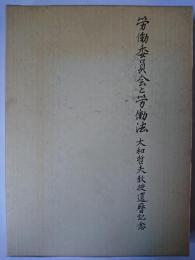 労働委員会と労働法
大和哲夫教授還暦記念